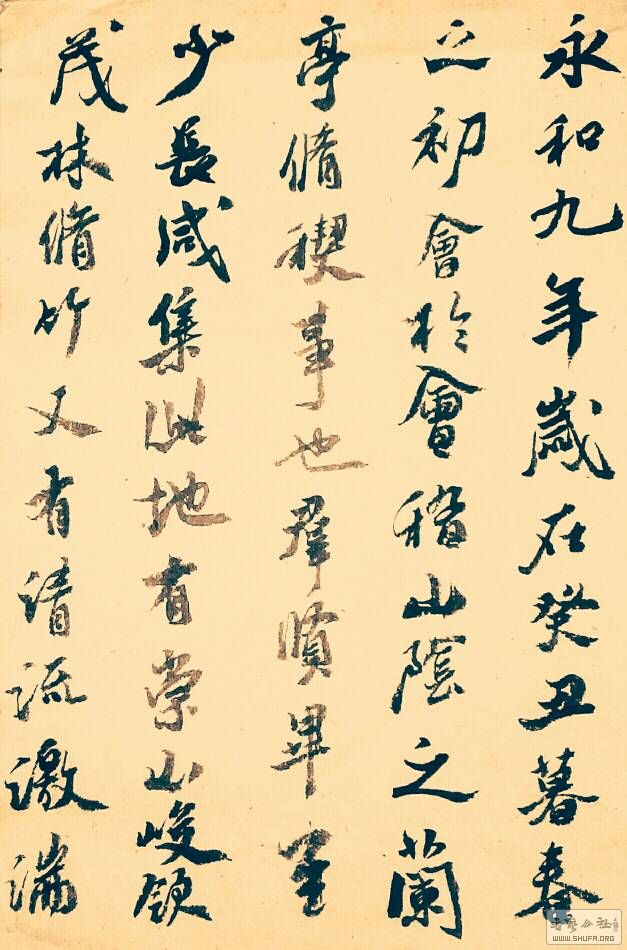 永和九年歲在癸丑暮春
之初會於會稽山陰之蘭
亭脩稧事也群賢畢至
少長咸集此地有崇山峻領
茂林脩竹又有清流激湍
WWW.SHUFA.ORG